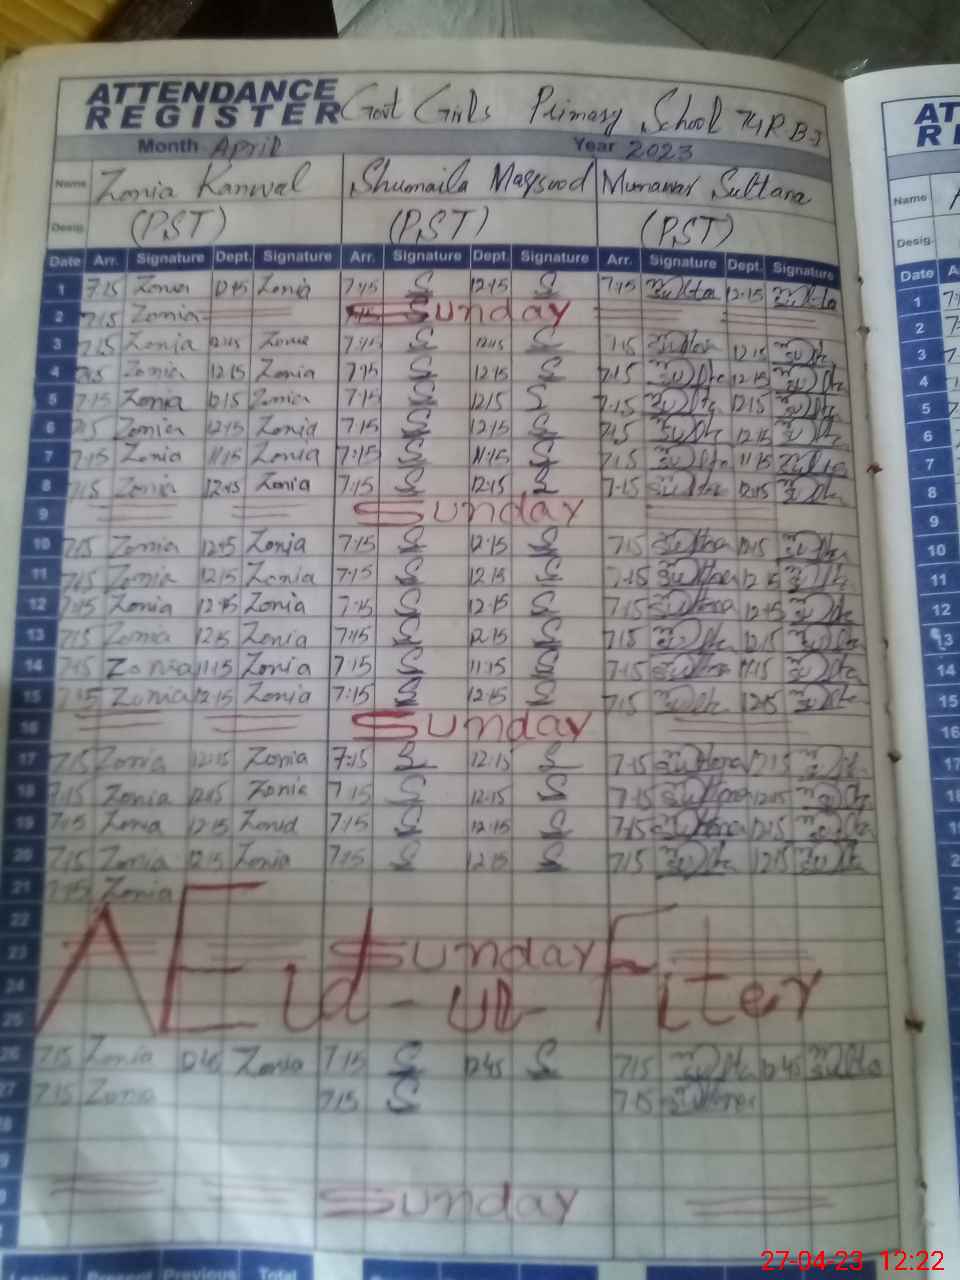 ATTENDANCE REGISTER Govt Girls Primary School
Month April Year 2023
Name Zonia Kanwal Shumaila Maqsood Munawar Sultana
Desig. (PST) (PST) (PST)
Date Arr. Signature Dept. Signature Arr. Signature Dept. Signature Arr. Signature Dept. Signature
1 7:15 Zonia 12:15 Zonia 7:15 S 12:15 S 7:15 12:15
2 7:15 Zonia Sunday
3 7:15 Zonia 12:15 Zonia S 12:15 S 7:15 12:15
4 Zonia 12:15 Zonia 7:15 S 12:15 S 7:15 12:15
5 7:15 Zonia 12:15 Zonia 7:15 S 12:15 S 7:15 12:15
6 Zonia 12:15 Zonia 7:15 S 12:15 S 12:15
7 7:15 Zonia 11:15 Zonia 7:15 S 11:15 S 7:15 11:15
8 7:15 Zonia 12:15 Zonia 7:15 S 12:15 S 7:15 12:15
9 Sunday
10 7:15 Zonia 12:15 Zonia 7:15 S 12:15 S 7:15 12:15
11 7:15 Zonia 12:15 Zonia 7:15 S 12:15 S 7:15 12:15
12 7:15 Zonia 12:15 Zonia 7:15 S 12:15 S 7:15 12:15
13 7:15 Zonia 12:15 Zonia 7:15 S 12:15 S 7:15 12:15
14 7:15 Zonia 11:15 Zonia 7:15 S 11:15 S 7:15 11:15
15 7:15 Zonia 12:15 Zonia 7:15 S 12:15 S 7:15 12:15
16 Sunday
17 7:15 Zonia 12:15 Zonia 7:15 S 12:15 S 7:15 12:15
18 7:15 Zonia 12:15 Zonia 7:15 S 12:15 S 7:15 12:15
19 7:15 Zonia 12:15 Zonia 7:15 S 12:15 S 7:15 12:15
20 7:15 Zonia 12:15 Zonia 7:15 S 12:15 S 7:15 12:15
21 7:15 Zonia
22
23 Sunday
24 Eid-Ul-Fiter
25
26 7:15 Zonia 12:45 Zonia 7:15 S 12:45 S 7:15 12:45
27 7:15 Zonia 7:15 S 7:15
Sunday
Previous Total
Name
Desig.
Date
1
2
3
4
5
6
7
8
9
10
11
12
13
14
15
16
17
18
27-04-23 12:22